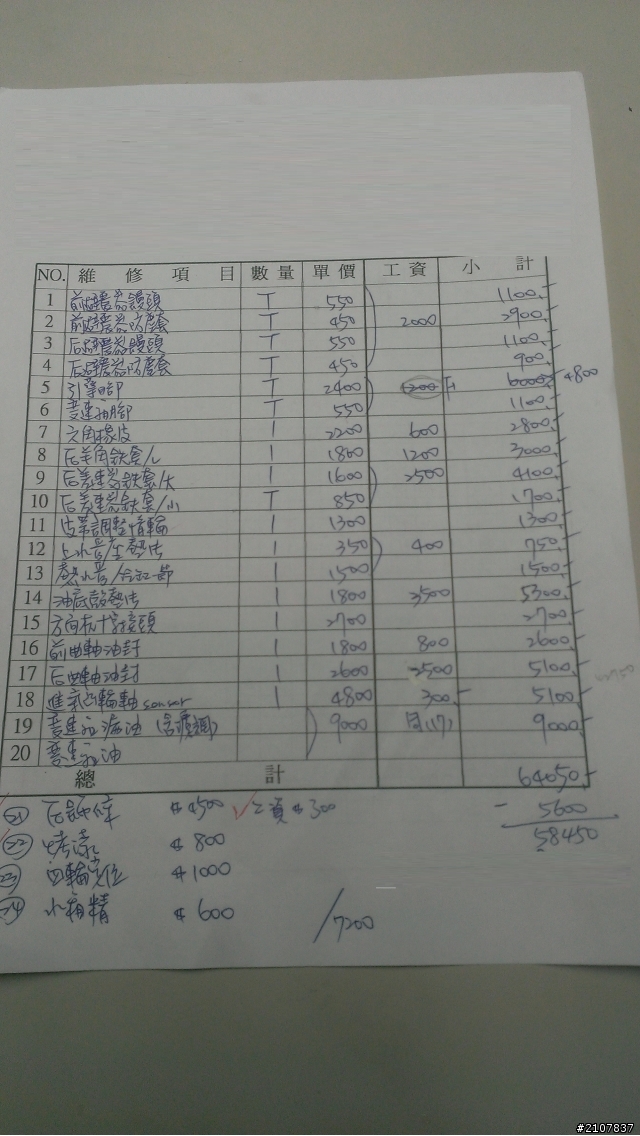 NO. 維修項目 數量 單價 工資 小計
1 前避震器饅頭 T 550 1100.
2 前避震器防塵套 T 450 2000 2900.
3 后避震器饅頭 T 550 1100.
4 后避震器防塵套 T 450 900.
5 引擎腳 T 2400 1200 6000 4800
6 變速箱腳 T 550 1100.
7 六角橡皮 1 2200 600 2800
8 后羊角鉄套/ 1 1800 1200 3000.
9 后差速器鉄套/大 1 1600 2500 4100
10 后差速器鉄套/小 T 850 1700
11 皮帶調整惰輪 1 1300 1300.
12 上水管/座墊片 1 350 400 750.
13 水管/ 1 1500 1500.
14 油底殼墊片 1 1800 3500 5300.
15 方向机十字接頭 1 2700 2700
16 前曲軸油封 1 1800 800 2600
17 后曲軸油封 1 2600 2500 5100
18 進氣凸輪軸sensor 1 4800 300 5100
19 變速箱油 (含濾網) 9000 同(17) 9000
20 變速箱油
總計 64050.
(21) 后 $4500 ✓工資$300 - 5600
(22) 烤漆 $800 58450
23 四輪定位 $1000
24 水箱精 $600 /7200
#2107837